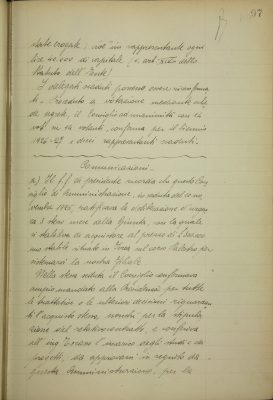 107
state erogate, cioè un rappresentante ogni
lire 20.000 di capitale (v. art. XIV dello
Statuto dell'Ente)
I delegati scaduti possono essere riconferma
ti. Proceduto a votazione mediante sche
de segrete, il Consiglio ad unanimità con 12
voti su 12 votanti, conferma per il biennio
1926-27 i due rappresentanti scaduti.
Comunicazioni.
a) Il f.f. di presidente ricorda che questo Con
siglio di Amministrazione, in seduta del
1925, ratificava la deliberazione
della Giunta, con la quale
si stabiliva di acquistare al prezzo di
stabile situato in Ivrea sul corso Palestro
la nostra Filiale.
Nella stessa seduta il Consiglio confermava
ampio mandato alla Presidenza per tutte
le trattative e le ulteriori decisioni riguardan
ti l'acquisto stesso, nonché per la stipula
zione del relativo contratto, e conferiva
all'ing. l'incarico degli studi e dei
progetti, da approvarsi in seguito da
questa Amministrazione, per la